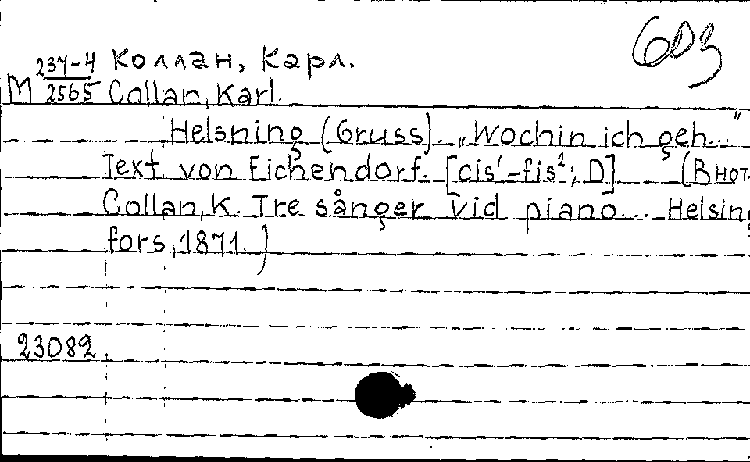 603
237-4 Коллан, Карл.
M 2565 Collan, Karl.
Helsning (Gruss). „Wochin ich geh..."
Text von Eichendorf. [cis'-fis²; D] (В нот.
Collan, K. Tre sånger vid piano... Helsing
fors, 1871.)
23082